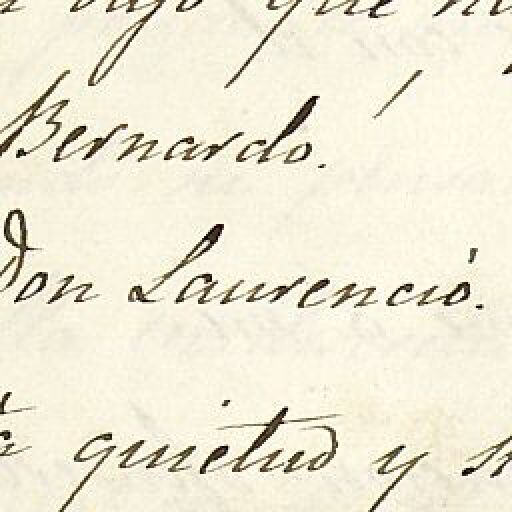 bajo que
Bernardo.
Don Laurencio.
quietud y